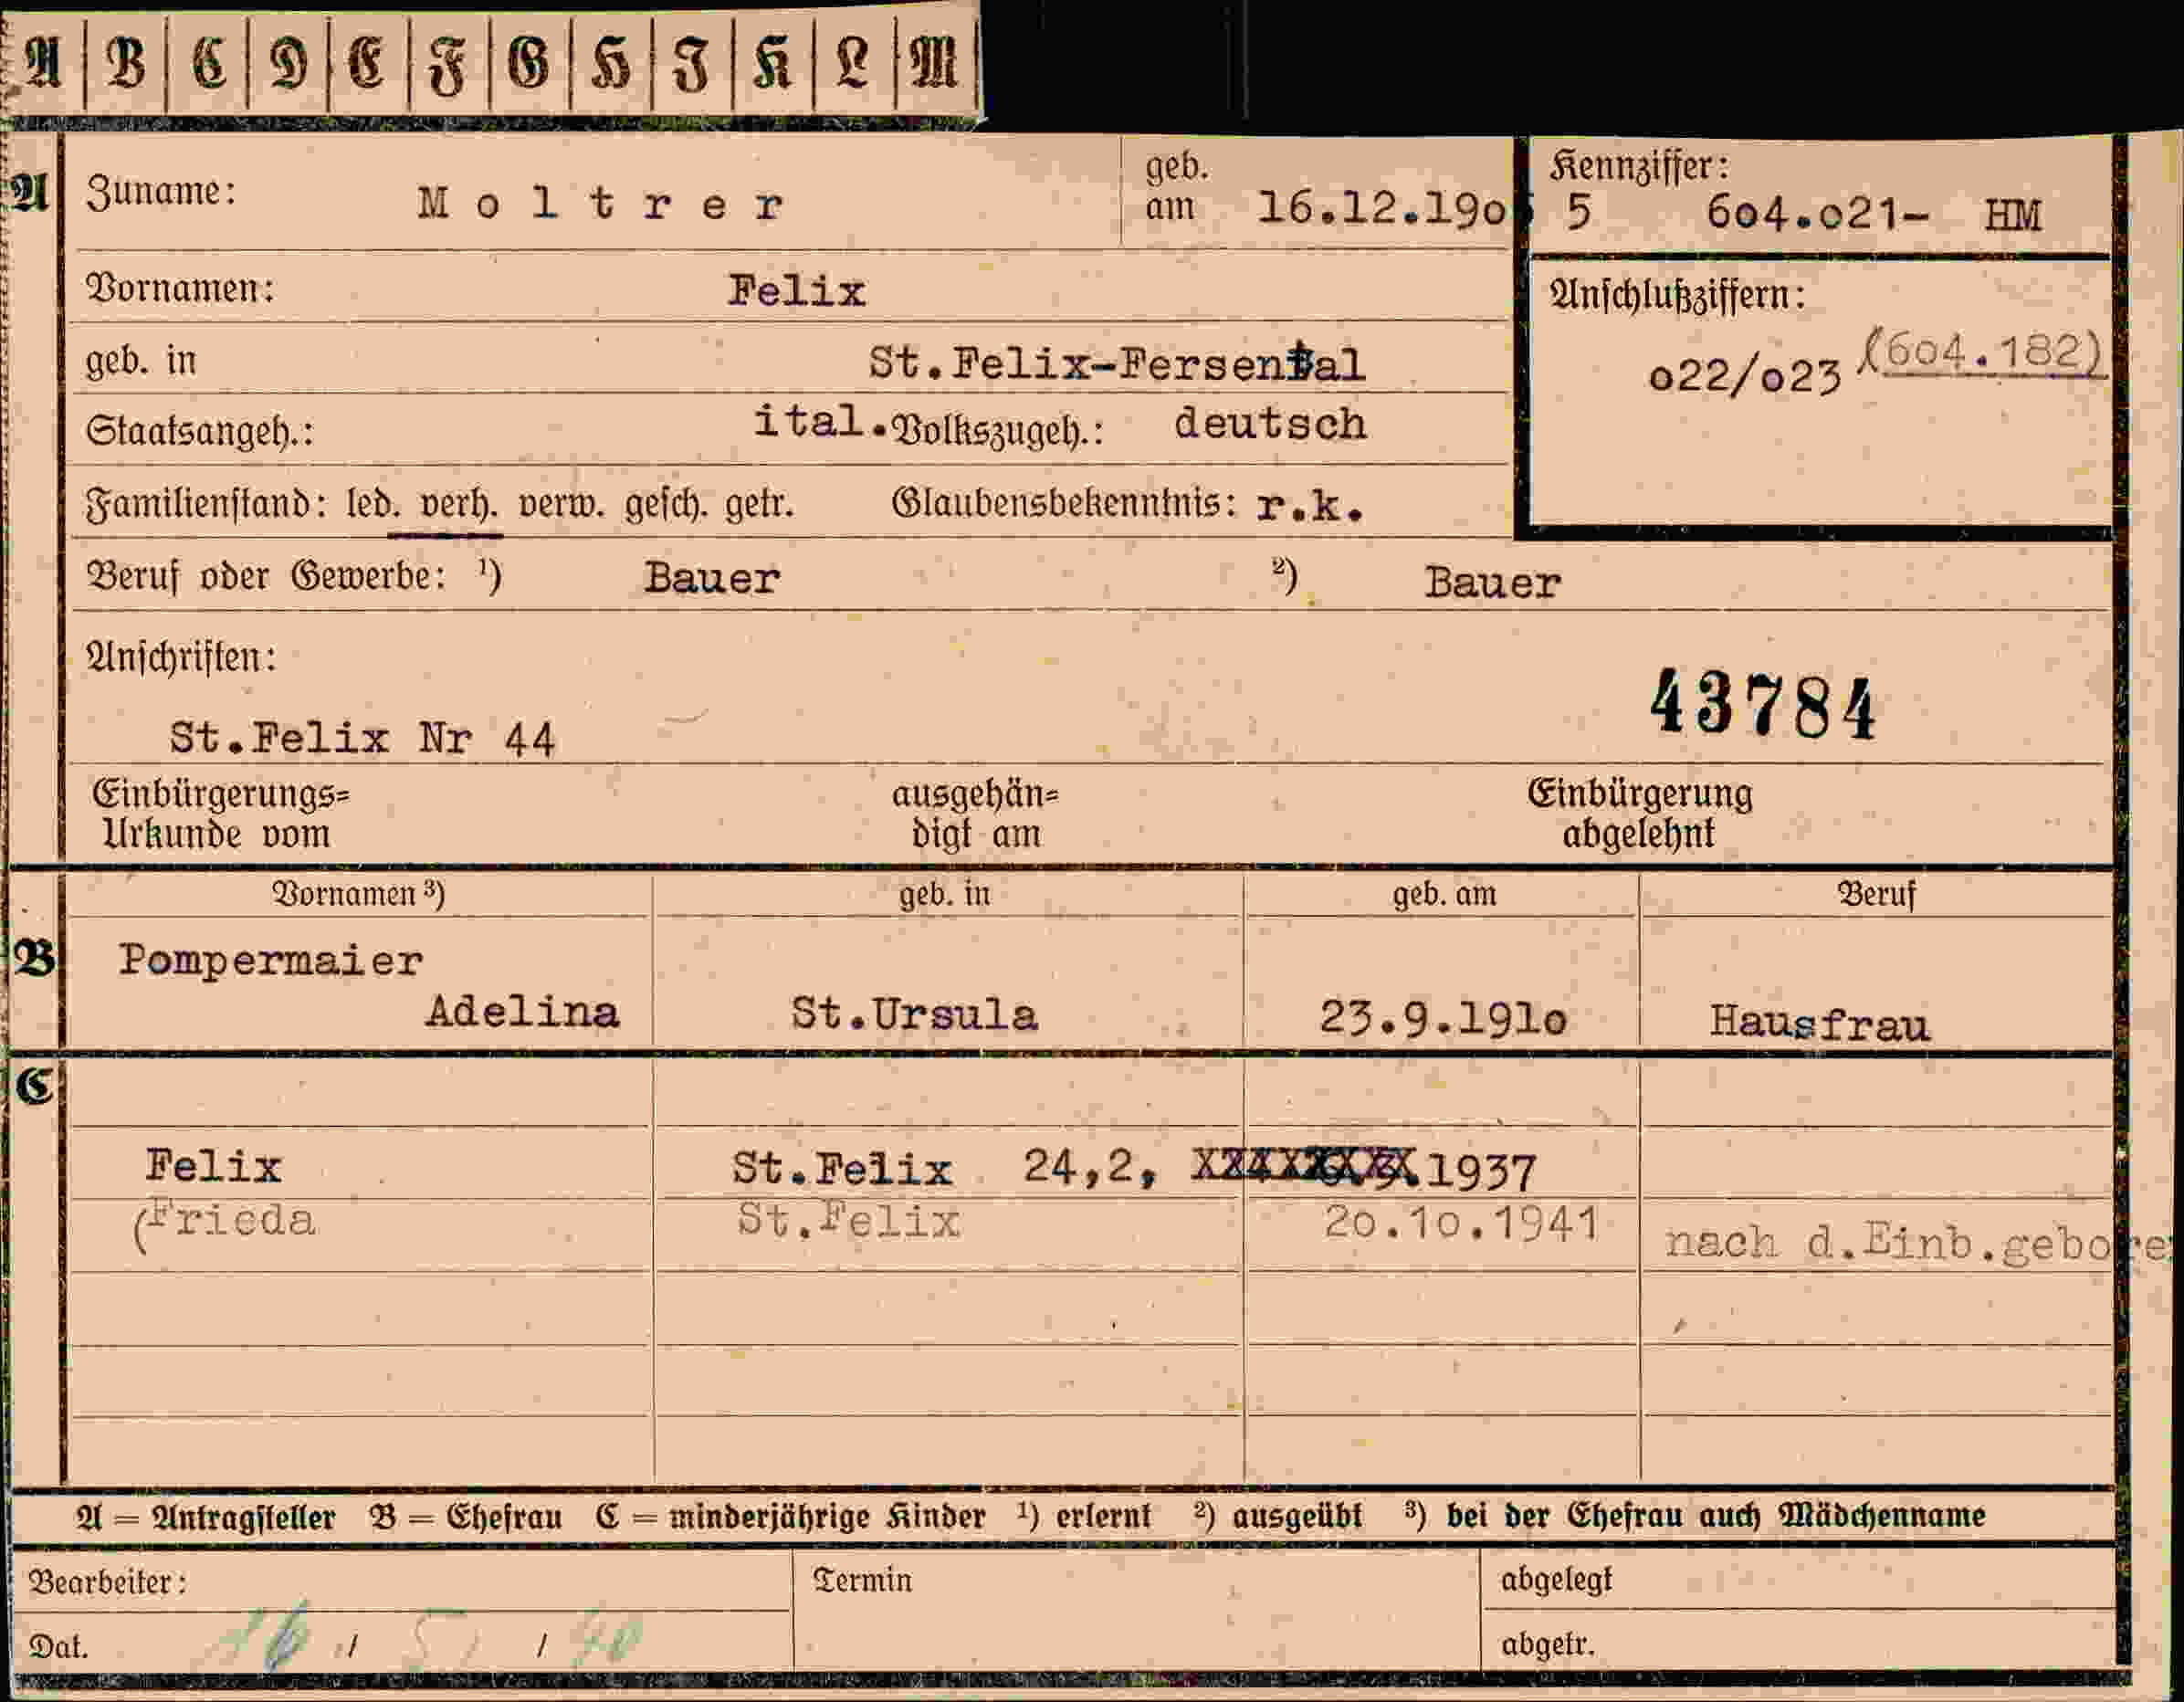 A B C D E F G H I K L M
A Zuname: Moltrer geb. am 16.12.1905 Kennziffer: 604.021- HM
Vornamen: Felix
Anschlußziffern:
geb. in St.Felix-Fersental o22/o23 (604.182)
Staatsangeh.: ital. Volkszugeh.: deutsch
Familienstand: led. verh. verw. gesch. getr. Glaubensbekenntnis: r.k.
Beruf oder Gewerbe: ¹) Bauer ²) Bauer
Anschriften:
43784
St.Felix Nr 44
Einbürgerungs= ausgehän= Einbürgerung
Urkunde vom digt am abgelehnt
Vornamen ³) geb. in geb. am Beruf
B Pompermaier
Adelina St.Ursula 23.9.191o Hausfrau
C
Felix St.Felix 24,2, 1937
(Frieda St.Felix 2o.1o.1941 nach d.Einb.gebore
A = Antragsteller B = Ehefrau C = minderjährige Kinder ¹) erlernt ²) ausgeübt ³) bei der Ehefrau auch Mädchenname
Bearbeiter: Termin abgelegt
Dat. 16 / 5 / 40 abgetr.